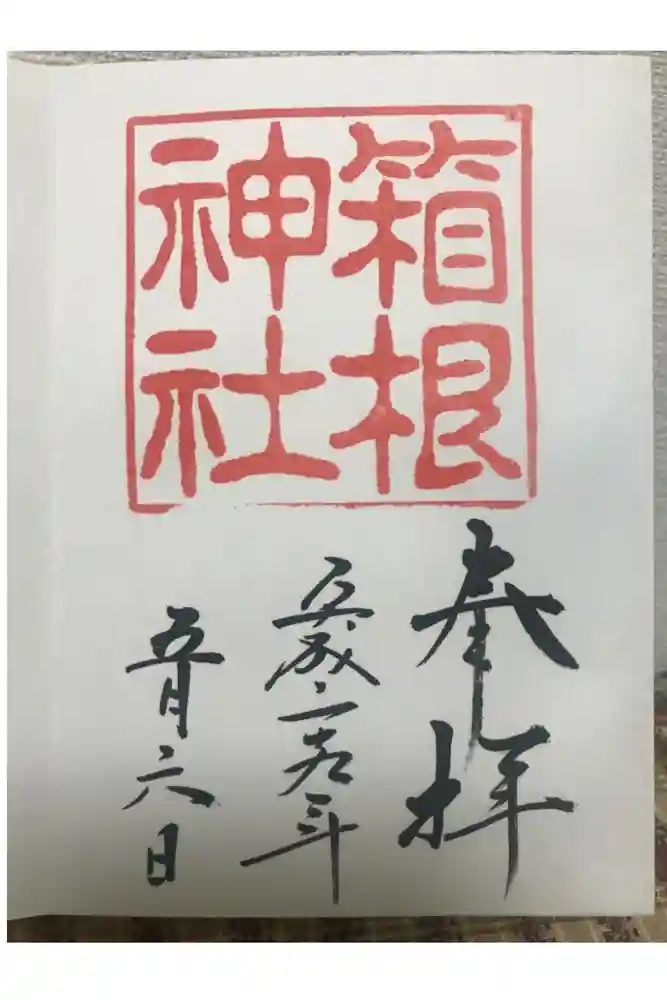 箱根
神社
奉拝
平成二十九年
五月六日